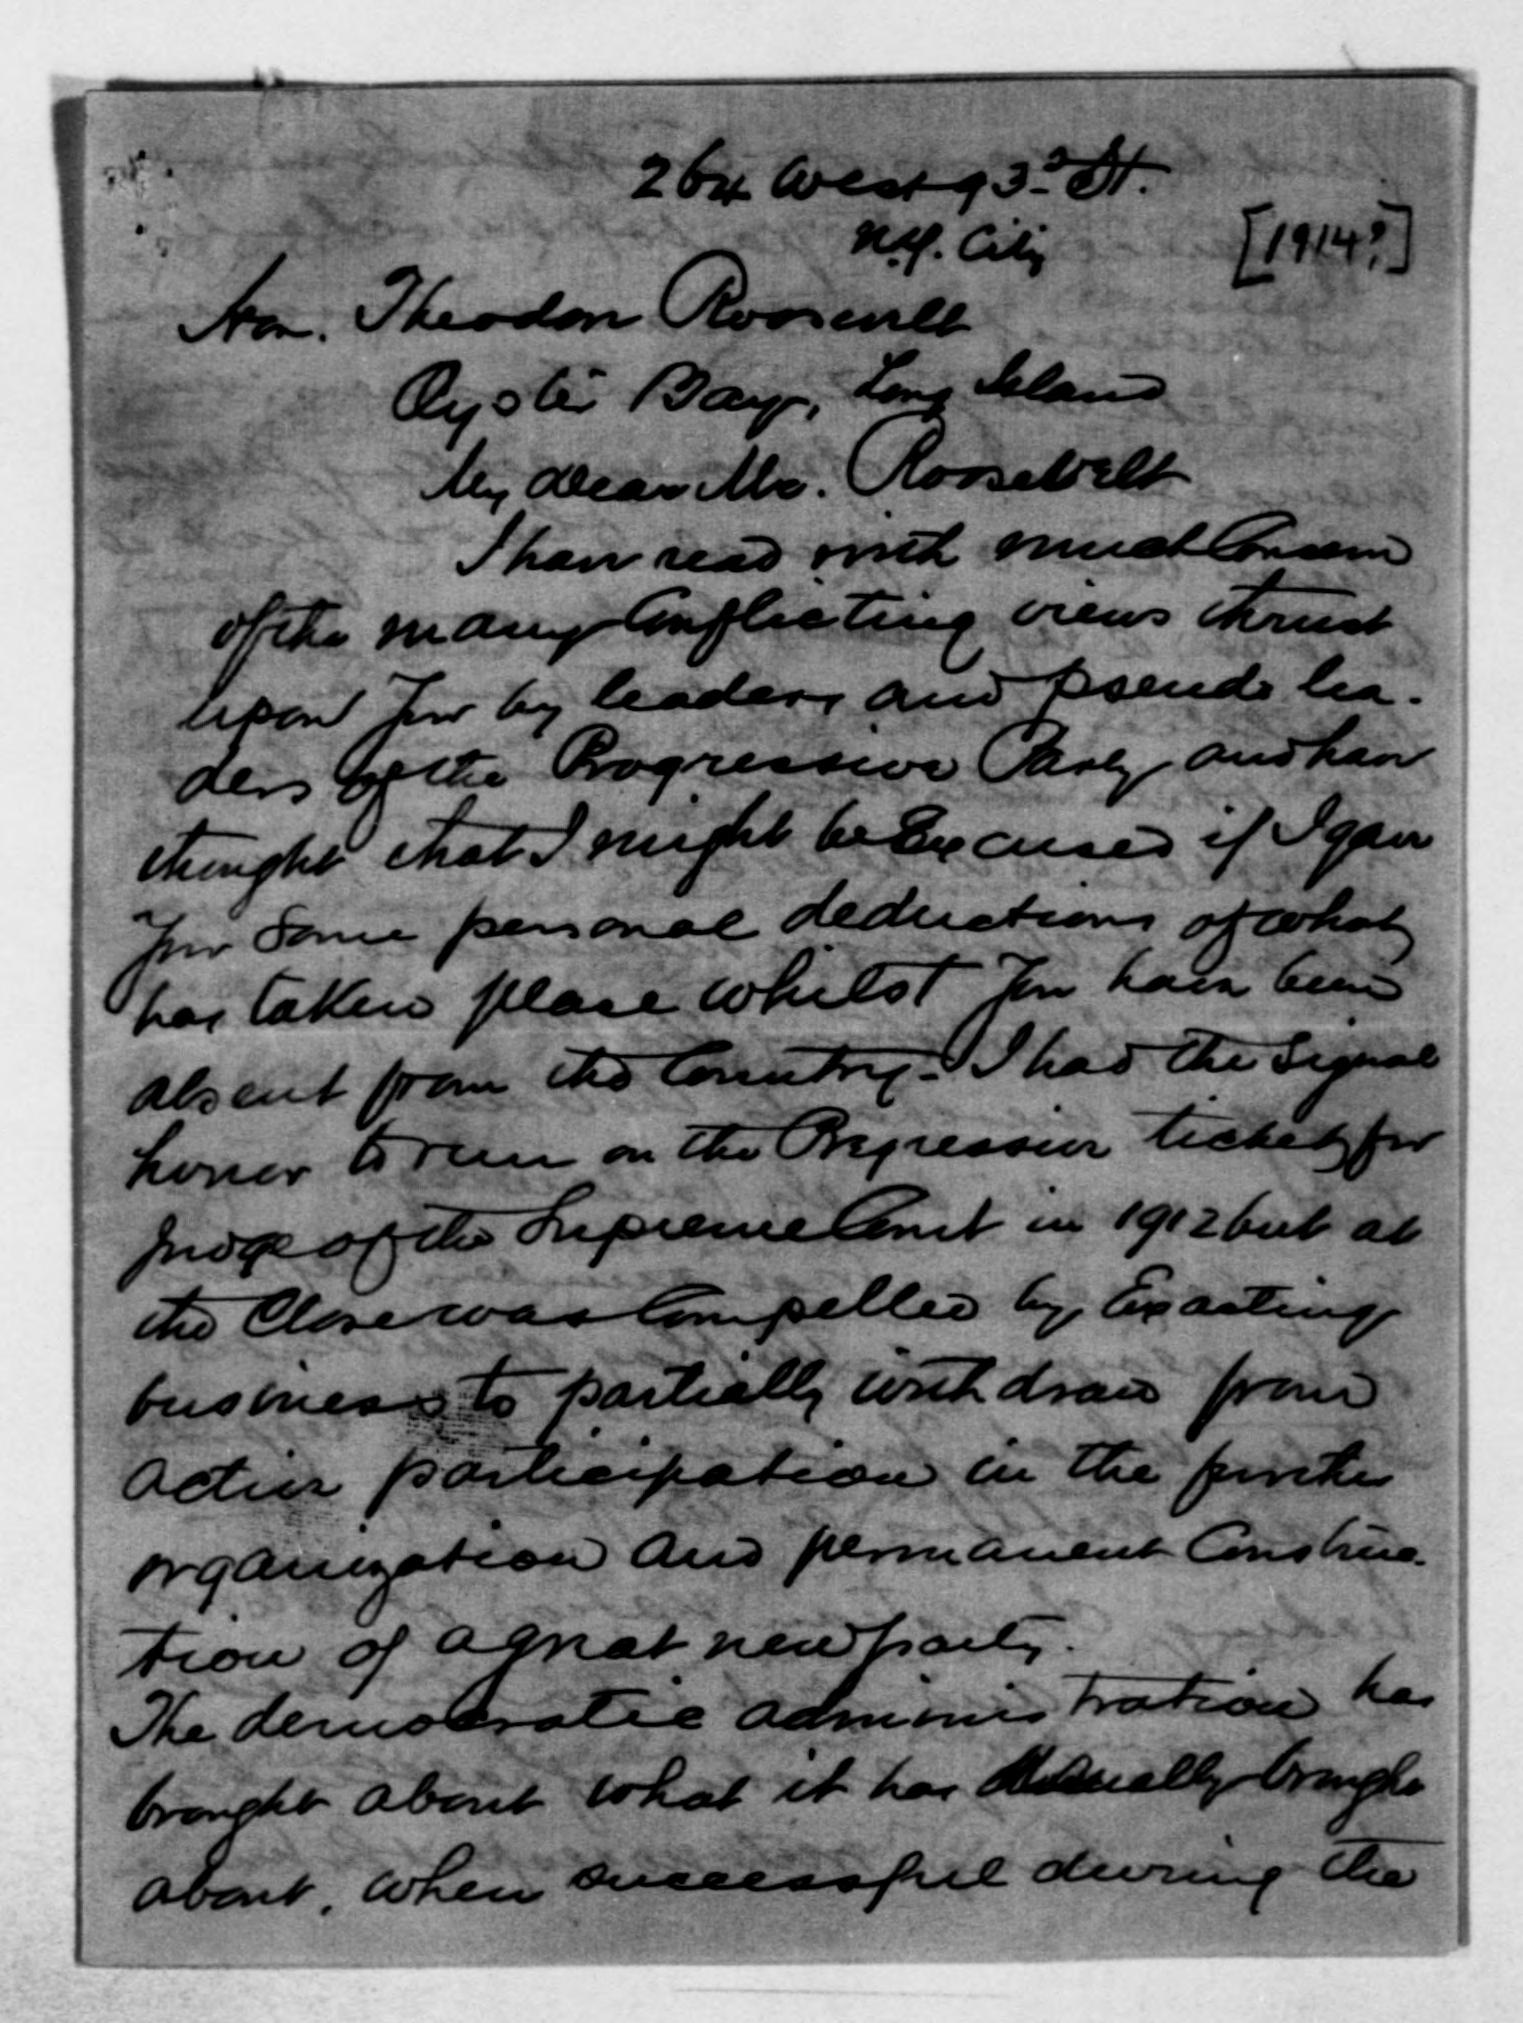 264 West 93d St.
N.Y. City
[1914?]
Hon. Theodore Roosevelt
Oyster Bay, Long Island
My dear Mr. Roosevelt
I have read with much Concern
of the many Conflicting views thrust
upon You by leaders and pseudo lea-
ders of the Progressive Party and have
thought that I might be Excused if I gave
You Some personal deductions of what
has taken place whilst You have been
absent from the Country - I had the Signal
honor to run on the Progressive ticket for
Judge of the Supreme Court in 1912 but at
the Close was Compelled by Exacting
business to partially withdraw from
active participation in the further
organization and permanent Construc-
tion of a great new party.
The democratic administration has
brought about what it has usually brought
about, when successful during the